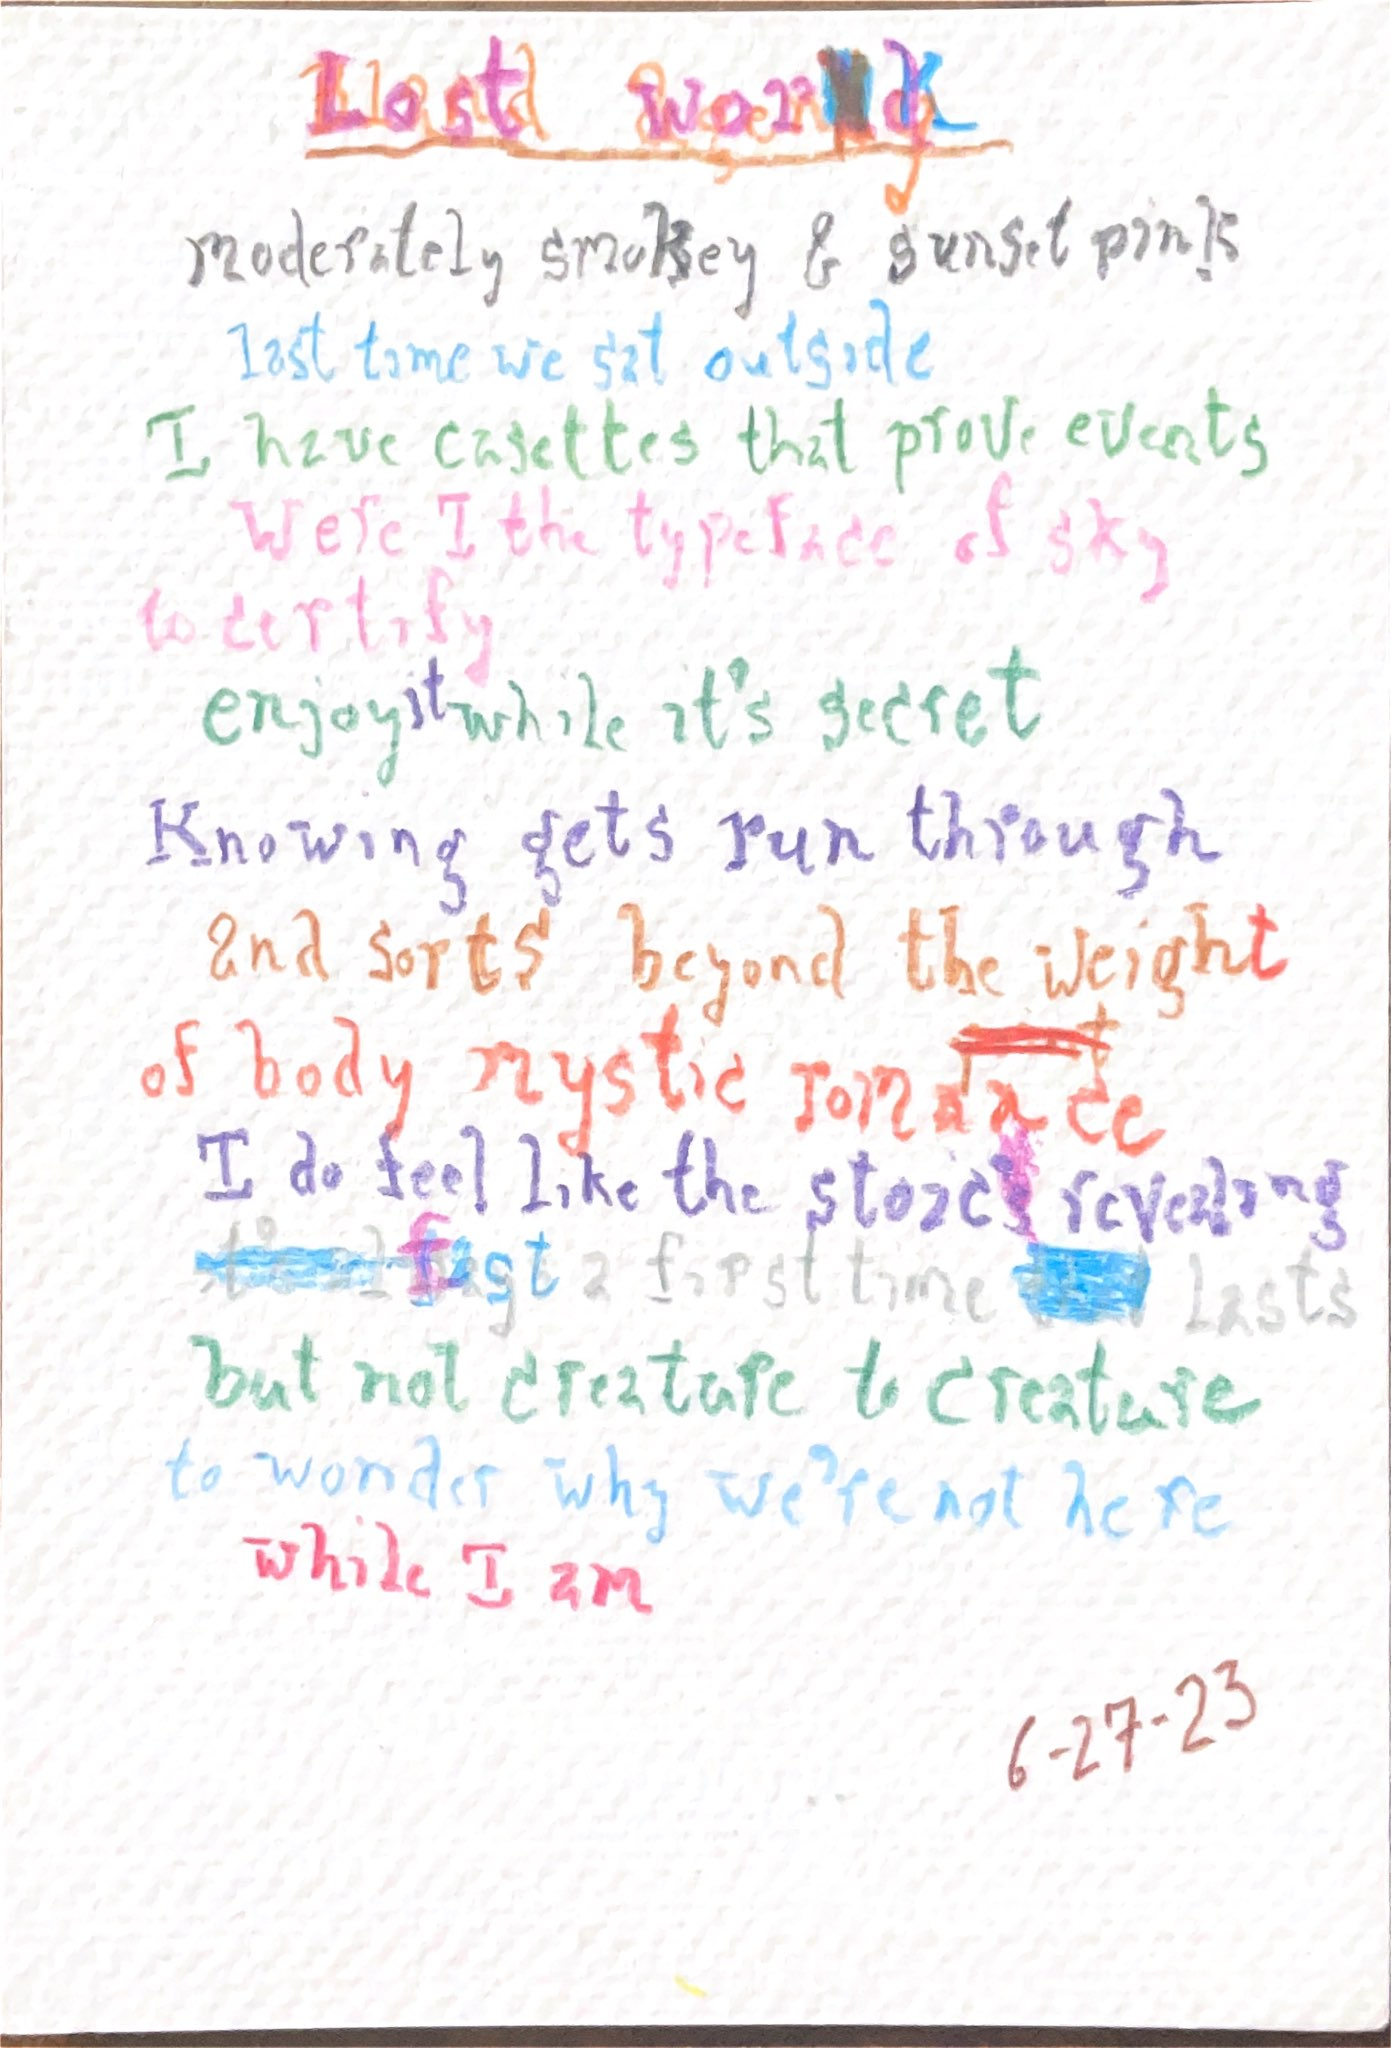 Lost work
moderately smokey & sunset pink
last time we sat outside
I have casettes that prove events
Were I the typeface of sky
to certify
enjoy it while it's secret
Knowing gets run through
and sorts beyond the weight
of body mystic romance
I do feel like the stoic revealing
fast a first time lasts
but not creature to creature
to wonder why we're not here
while I am
6-27-23